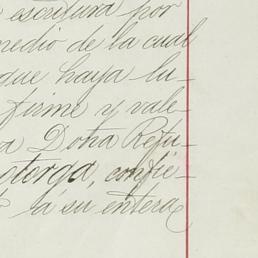 escritura por
medio de la cual
que haya lu-
firme y vale-
a Doña Refu-
otorga, confie-
á su entera